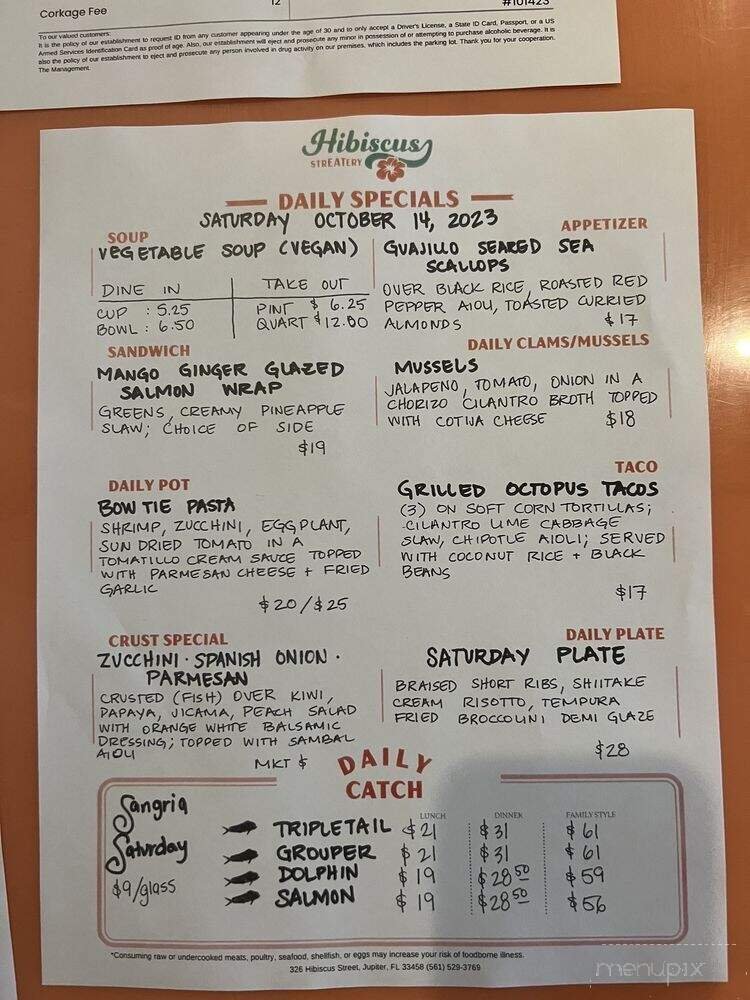 Corkage Fee 12 #101423
To our valued customers:
It is the policy of our establishment to request ID from any customer appearing under the age of 30 and to only accept a Driver's License, a State ID Card, Passport, or a US
Armed Services Identification Card as proof of age. Also, our establishment will eject and prosecute any minor in possession of or attempting to purchase alcoholic beverage. It is
also the policy of our establishment to eject and prosecute any person involved in drug activity on our premises, which includes the parking lot. Thank you for your cooperation.
The Management.
Hibiscus
STREATERY
DAILY SPECIALS
SATURDAY OCTOBER 14, 2023
SOUP
VEGETABLE SOUP (VEGAN)
DINE IN TAKE OUT
CUP : 5.25 PINT $ 6.25
BOWL : 6.50 QUART $12.00
APPETIZER
GUAJILLO SEARED SEA
SCALLOPS
OVER BLACK RICE, ROASTED RED
PEPPER AIOLI, TOASTED CURRIED
ALMONDS $17
SANDWICH
MANGO GINGER GLAZED
SALMON WRAP
GREENS, CREAMY PINEAPPLE
SLAW; CHOICE OF SIDE
$19
DAILY CLAMS/MUSSELS
MUSSELS
JALAPENO, TOMATO, ONION IN A
CHORIZO CILANTRO BROTH TOPPED
WITH COTIJA CHEESE $18
DAILY POT
BOW TIE PASTA
SHRIMP, ZUCCHINI, EGGPLANT,
SUN DRIED TOMATO IN A
TOMATILLO CREAM SAUCE TOPPED
WITH PARMESAN CHEESE + FRIED
GARLIC
$20/$25
TACO
GRILLED OCTOPUS TACOS
(3) ON SOFT CORN TORTILLAS;
CILANTRO LIME CABBAGE
SLAW, CHIPOTLE AIOLI; SERVED
WITH COCONUT RICE + BLACK
BEANS
$17
CRUST SPECIAL
ZUCCHINI · SPANISH ONION ·
PARMESAN
CRUSTED (FISH) OVER KIWI,
PAPAYA, JICAMA, PEACH SALAD
WITH ORANGE WHITE BALSAMIC
DRESSING; TOPPED WITH SAMBAL
AIOLI
MKT $
DAILY PLATE
SATURDAY PLATE
BRAISED SHORT RIBS, SHIITAKE
CREAM RISOTTO, TEMPURA
FRIED BROCCOLINI DEMI GLAZE
$28
DAILY
CATCH
Sangria
Saturday
$9/glass
LUNCH DINNER FAMILY STYLE
TRIPLETAIL $21 $31 $61
GROUPER $21 $31 $61
DOLPHIN $19 $28.50 $59
SALMON $19 $28.50 $56
*Consuming raw or undercooked meats, poultry, seafood, shellfish, or eggs may increase your risk of foodborne illness.
326 Hibiscus Street, Jupiter, FL 33458 (561) 529-3769
menupix